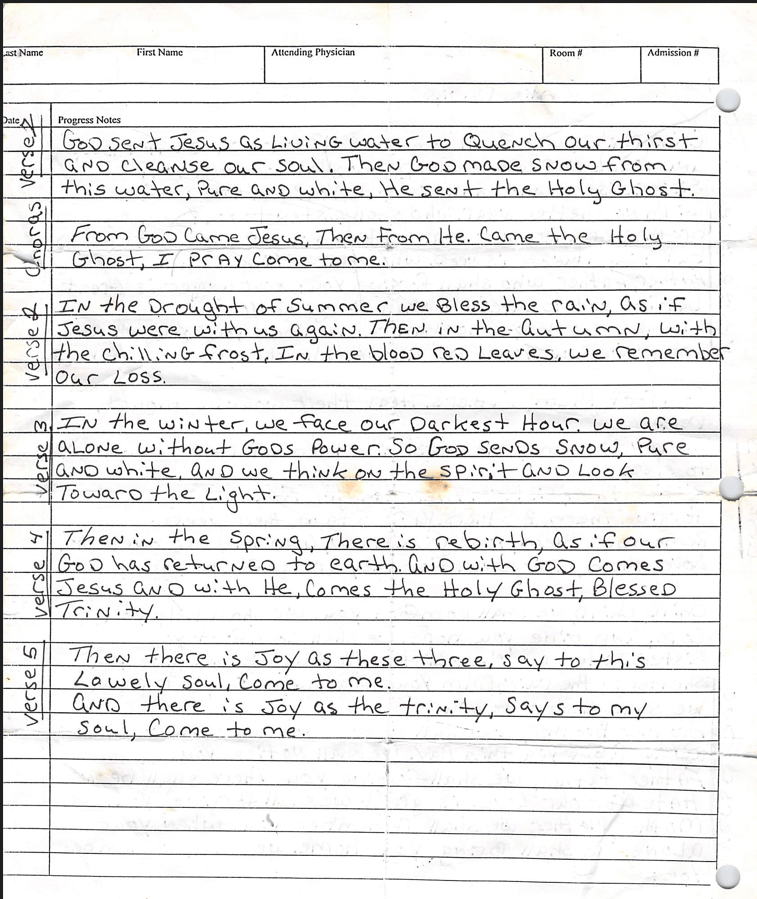 Last Name First Name Attending Physician Room # Admission #
Date Progress Notes
Verse
GOD sent Jesus as Living water to Quench our thirst
AND cleanse our soul. Then GOD made snow from
this water, Pure AND white, He sent the Holy Ghost.
Choras
From GOD Came Jesus, Then From He. Came the Holy
Ghost, I PRAY Come to me.
Verse 2
IN the Drought of Summer we Bless the rain, as if
Jesus were with us again. THEN in the AutumN, with
the chilliNG frost, IN the blood red Leaves, we remember
Our Loss.
Verse 3
IN the winter, we face our Darkest Hour. we are
ALONE without GODs Power. So GOD SENDS SNOW, Pure
AND white, AND we think ON the SPirit AND LOOK
Toward the Light.
Verse 4
Then in the Spring, There is rebirth, as if our
GOD has returned to earth. AND with GOD Comes
Jesus AND with He, Comes the Holy Ghost, Blessed
TriNity.
Verse 5
Then there is Joy as these three, say to this
Lowely Soul, Come to me.
AND there is Joy as the triNity, Says to my
Soul, Come to me.